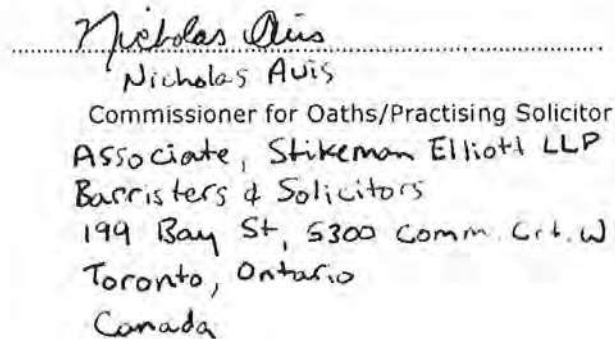 Nicholas Avis
Nicholas Avis
Commissioner for Oaths/Practising Solicitor
Associate, Stikeman Elliott LLP
Barristers & Solicitors
199 Bay St, 5300 Comm. Crt. W
Toronto, Ontario
Canada